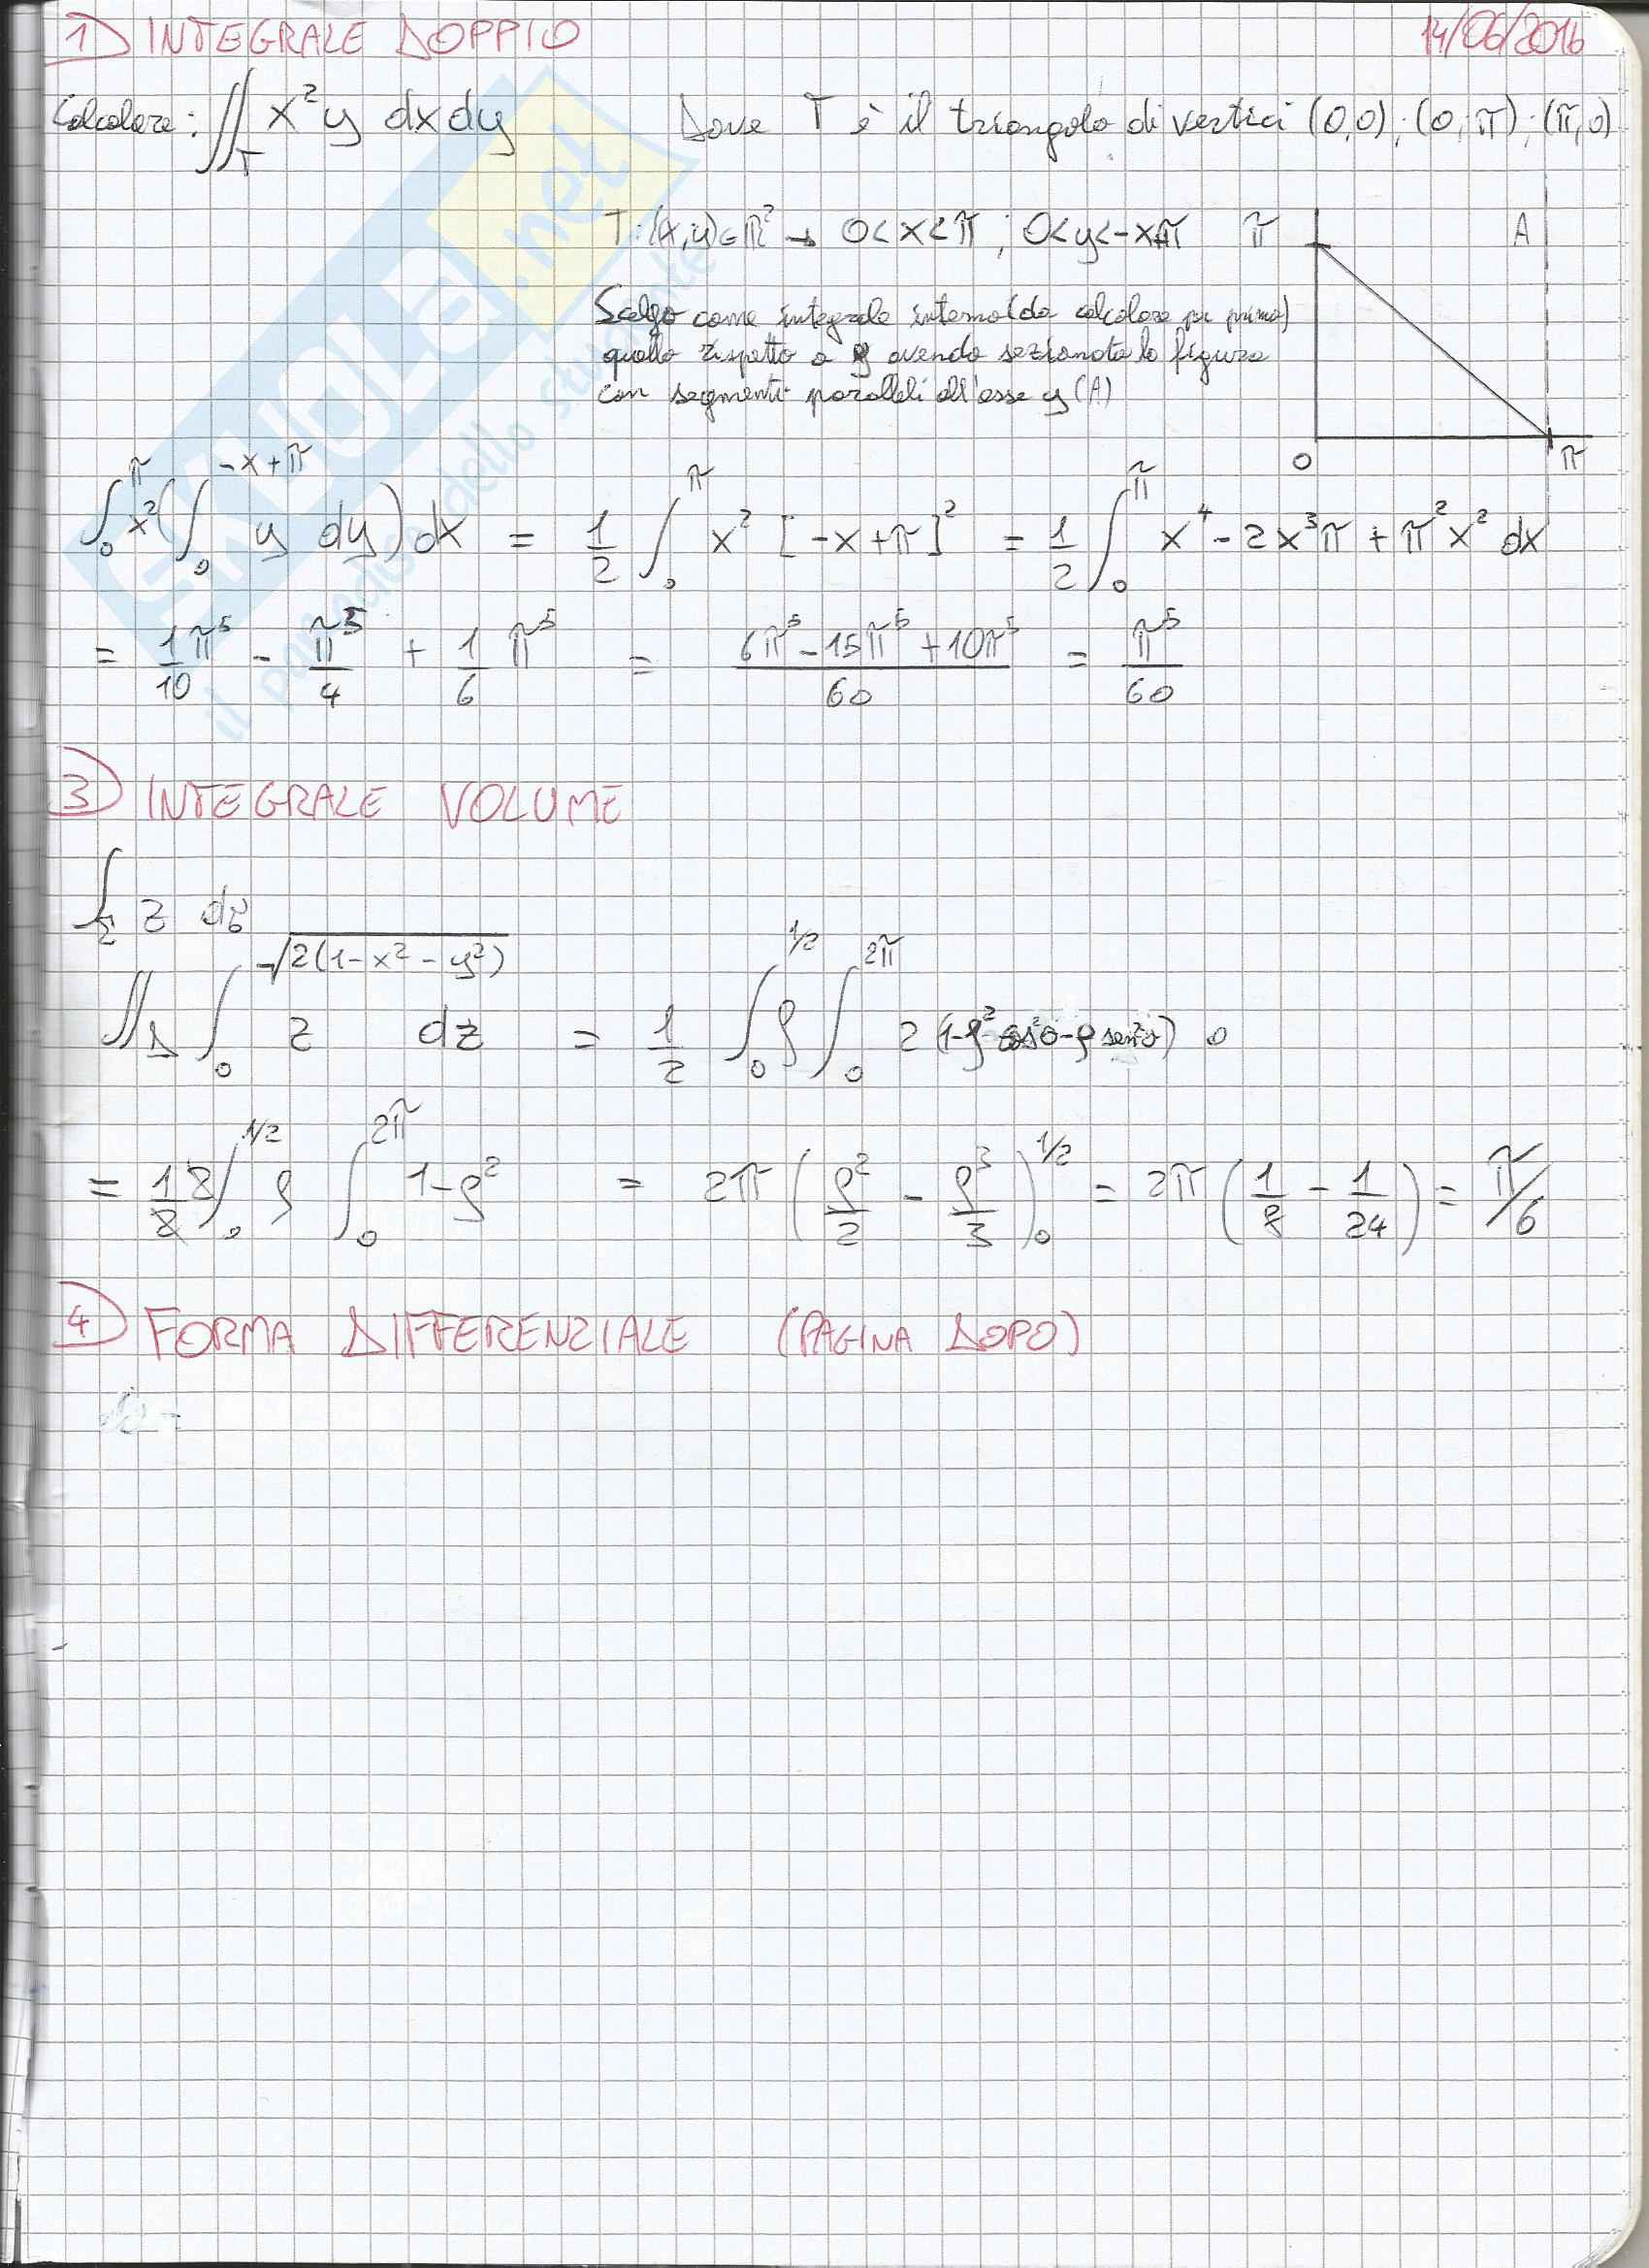 1) INTEGRALE DOPPIO 14/06/2016
Calcolare: ∬_T x² y dx dy Dove T è il triangolo di vertici (0,0); (0,π); (π,0)
T: (x,y)∈ℝ² → 0<x<π ; 0<y<-x+π π A
Scelgo come integrale interno (da calcolare per primo)
quello rispetto a y avendo sezionato la figura
con segmenti paralleli all'asse y (A)
0 π
∫_0^π x² (∫_0^{-x+π} y dy) dx = 1/2 ∫_0^π x² [-x+π]² = 1/2 ∫_0^π x⁴ - 2x³π + π²x² dx
= 1/10 π⁵ - π⁵/4 + 1/6 π⁵ = (6π⁵ - 15π⁵ + 10π⁵)/60 = π⁵/60
3) INTEGRALE VOLUME
∫ z dz
∬_D ∫_0^{√(2(1-x²-y²))} z dz = 1/2 ∫_0^{1/2} ρ ∫_0^{2π} 2 (1-ρ² cos²θ-ρ sen²θ) θ
= 1/2 2 ∫_0^{1/2} ρ ∫_0^{2π} 1-ρ² = 2π (ρ²/2 - ρ³/3)_0^{1/2} = 2π (1/8 - 1/24) = π/6
4) FORMA DIFFERENZIALE (PAGINA DOPO)
SKUOLA.net
il paradiso dello studente